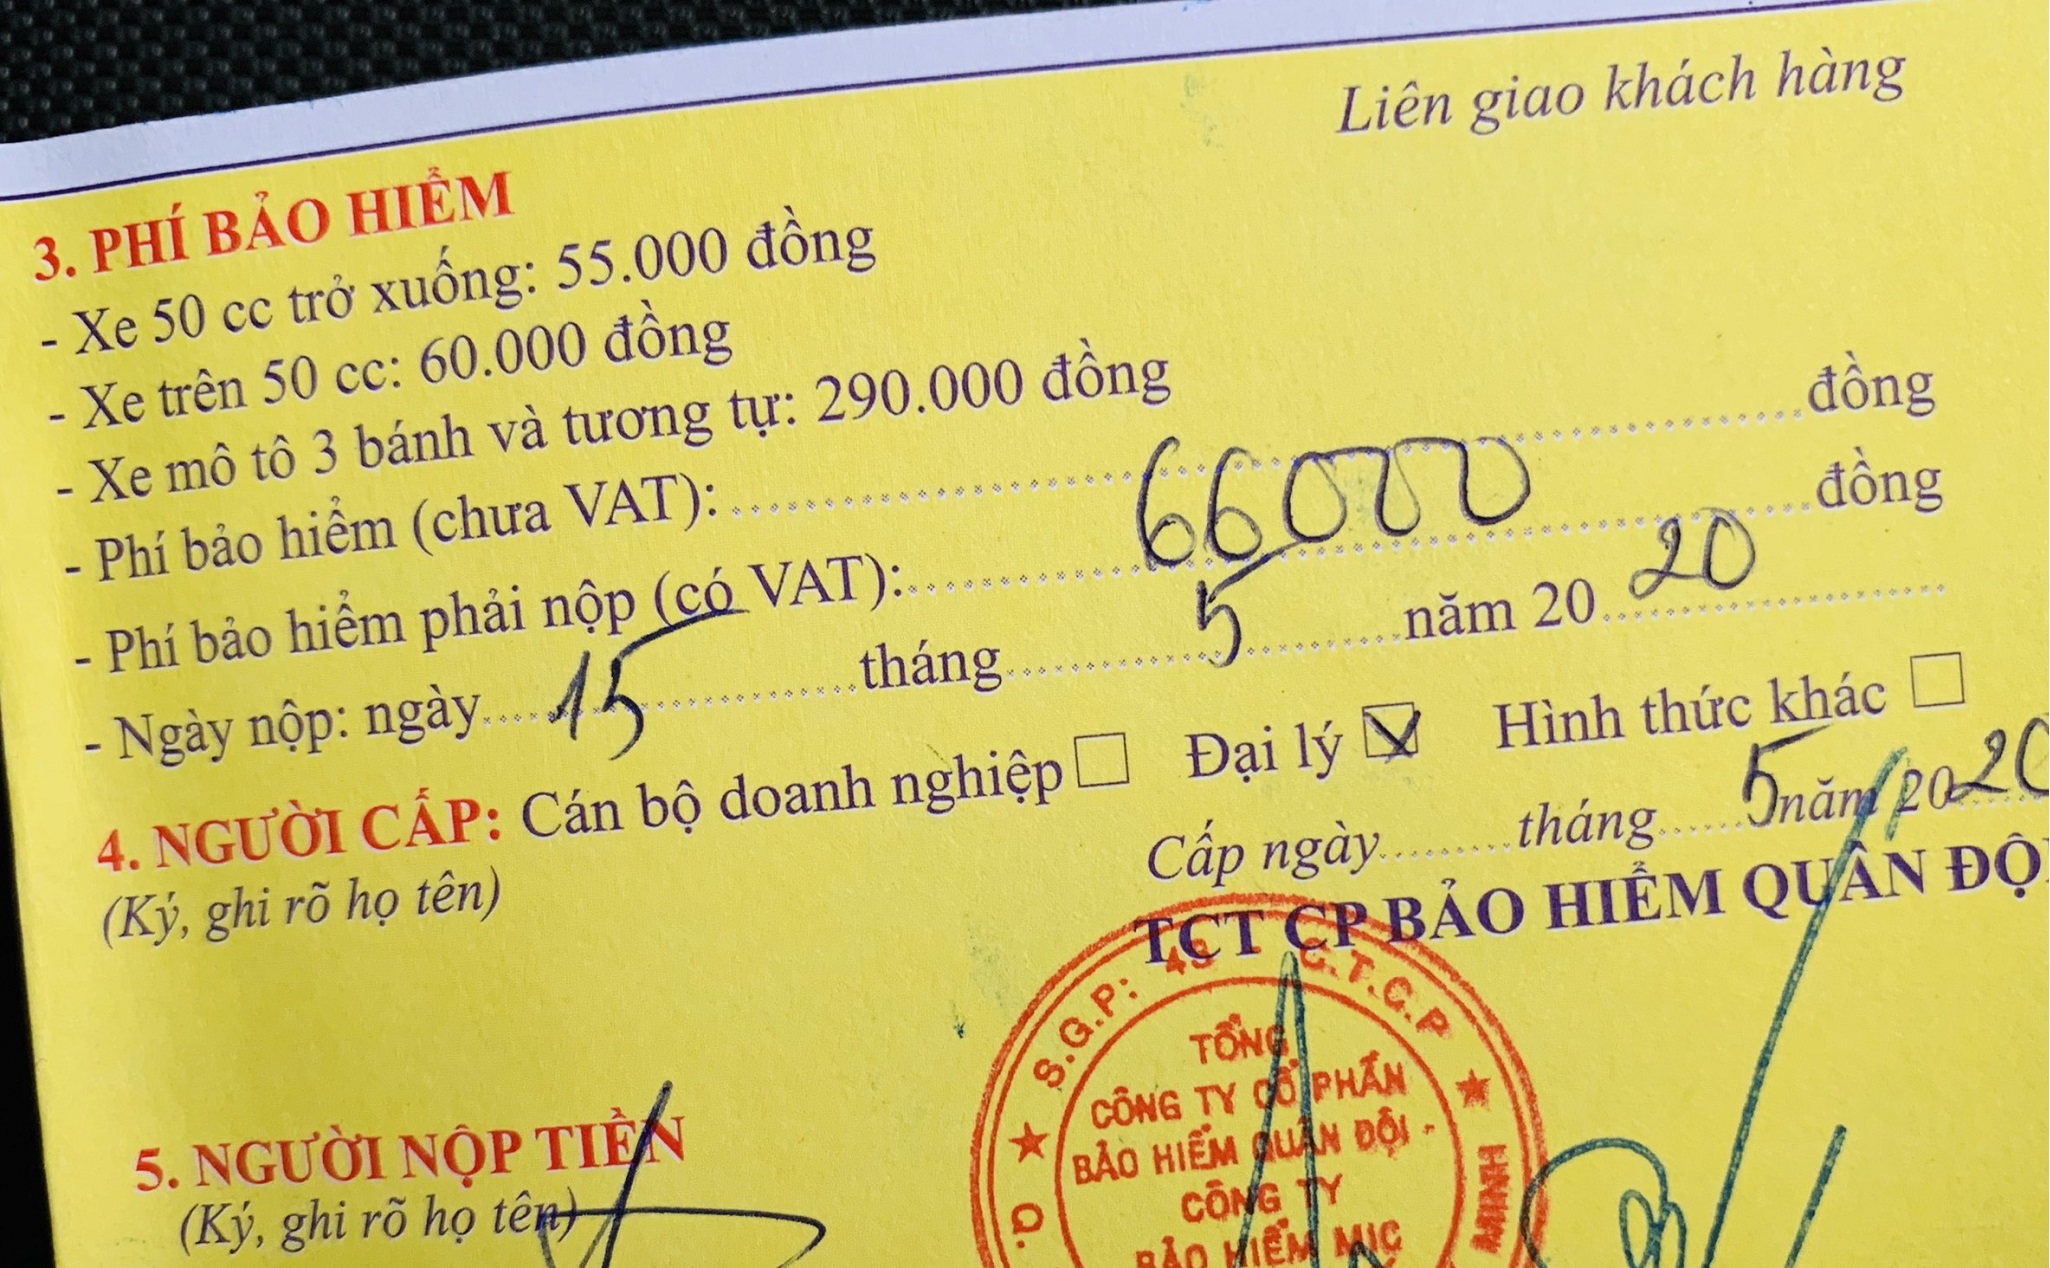 Liên giao khách hàng
3. PHÍ BẢO HIỂM
- Xe 50 cc trở xuống: 55.000 đồng
- Xe trên 50 cc: 60.000 đồng
- Xe mô tô 3 bánh và tương tự: 290.000 đồng
- Phí bảo hiểm (chưa VAT):........ đồng
- Phí bảo hiểm phải nộp (có VAT): 66000 đồng
- Ngày nộp: ngày 15 tháng 5 năm 20 20
4. NGƯỜI CẤP: Cán bộ doanh nghiệp ☐ Đại lý ☑ Hình thức khác ☐
(Ký, ghi rõ họ tên)
Cấp ngày........tháng 5 năm 20 20
TCT CP BẢO HIỂM QUÂN ĐỘI
S.G.P: 43 C.T.C.P
TỔNG
CÔNG TY CỔ PHẦN
BẢO HIỂM QUÂN ĐỘI -
CÔNG TY
BẢO HIỂM MIC
MINH
5. NGƯỜI NỘP TIỀN
(Ký, ghi rõ họ tên)